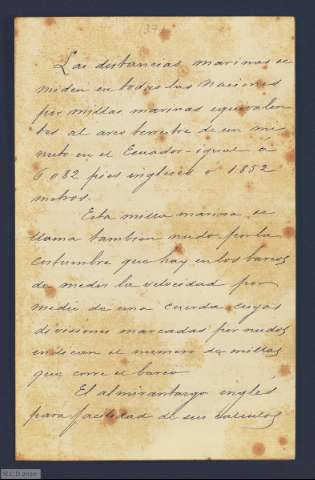 Las distancias marinas se
miden en todas las Naciones
por millas marinas equivalen
tes al arco terrestre de un mi
nuto en el Ecuador igual á
6.082 pies ingleses ó 1852
metros.
Esta milla marina, se
llama tambien nudo por la
costumbre que hay en los barcos
de medir la velocidad por
medio de una cuerda cuyas
divisiones marcadas por nudos
indican el numero de millas
que corre el barco
El almirantazgo inglés
para facilidad de sus calculos